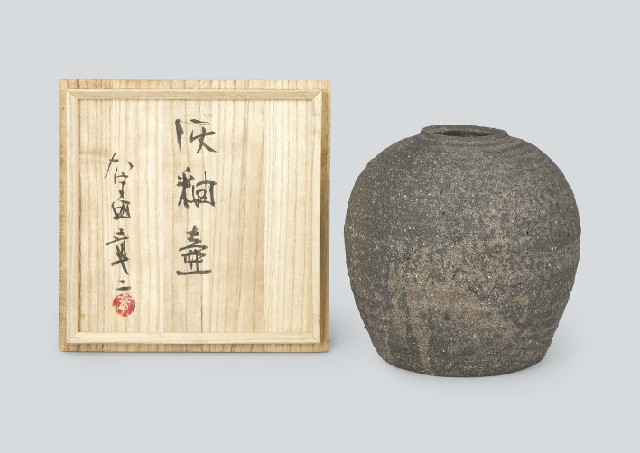 灰釉壺
加守田章二